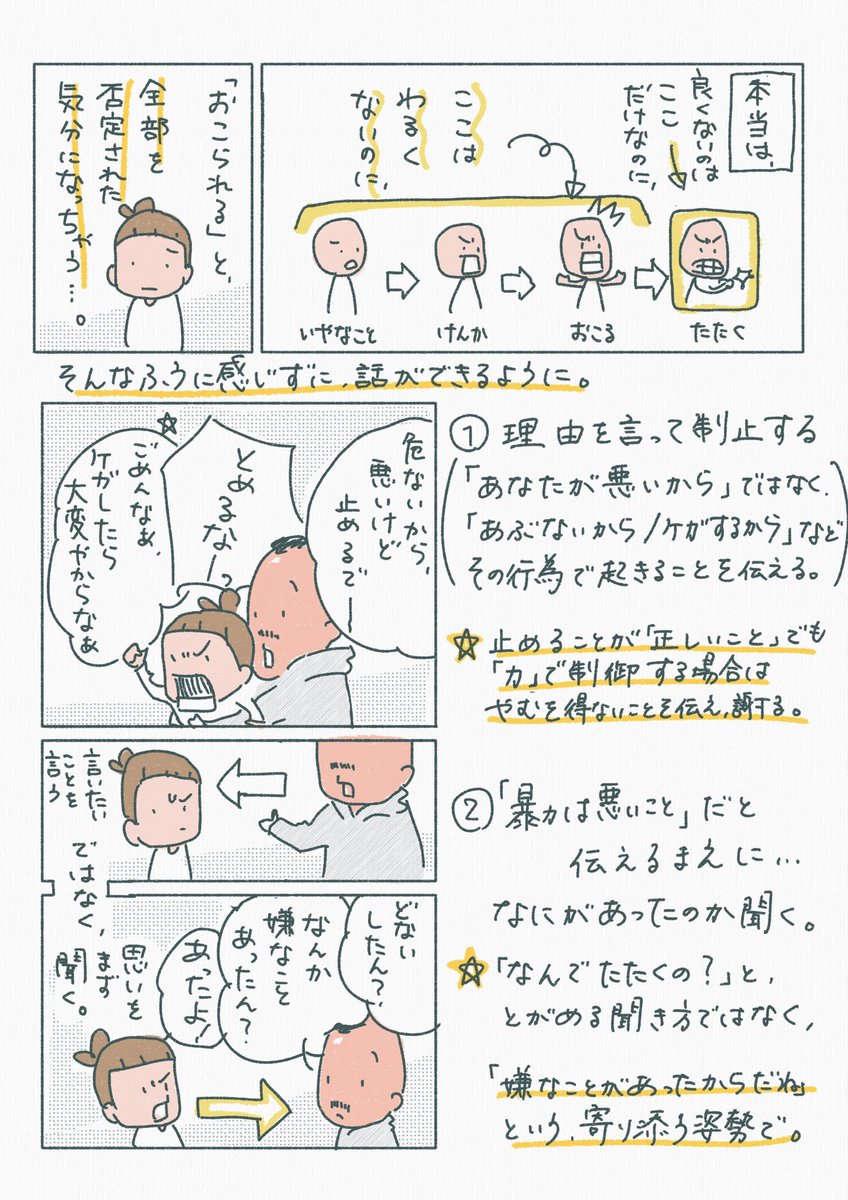 本当は、
良くないのは
ここ
だけなのに、
ここは
わるく
ないのに、
いやなこと
けんか
おこる
たたく
「おこられる」と、
全部を
否定された
気分になっちゃう…。
そんなふうに感じずに、話ができるように。
①理由を言って制止する
(「あなたが悪いから」ではなく、
「あぶないから/ケガするから」など
その行為で起きることを伝える。)
危ないから、
悪いけど
止めるでー
とめるなーっ
☆
ごめんなぁ、
ケガしたら
大変やからなぁ
☆止めることが「正しいこと」でも
「力」で制御する場合は
やむを得ないことを伝え、謝する。
②「暴力は悪いこと」だと
伝えるまえに…
なにがあったのか聞く。
言いたい
ことを
言う
ではなく、
思いを
まず
聞く。
どない
したん?
なんか
嫌なこと
あったん?
あったよ!
☆「なんでたたくの?」と、
とがめる聞き方ではなく、
「嫌なことがあったからだね」
という、寄り添う姿勢で。